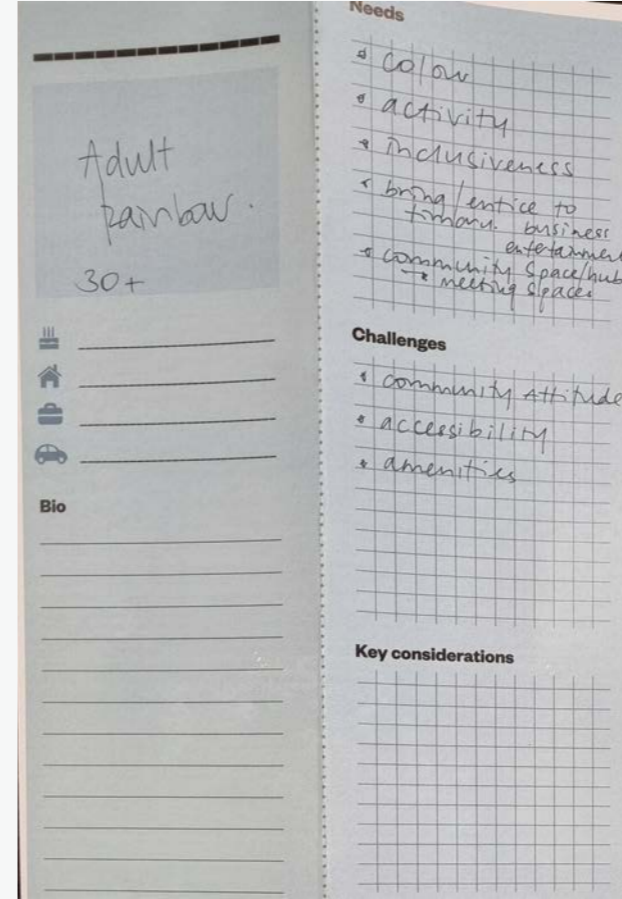 Adult
Rainbow.
30+
Bio
Needs
colour
activity
inclusiveness
bring/entice to
timaru. business
entertainment
community space/hub
→ meeting spaces
Challenges
community Attitude
accessibility
amenities
Key considerations